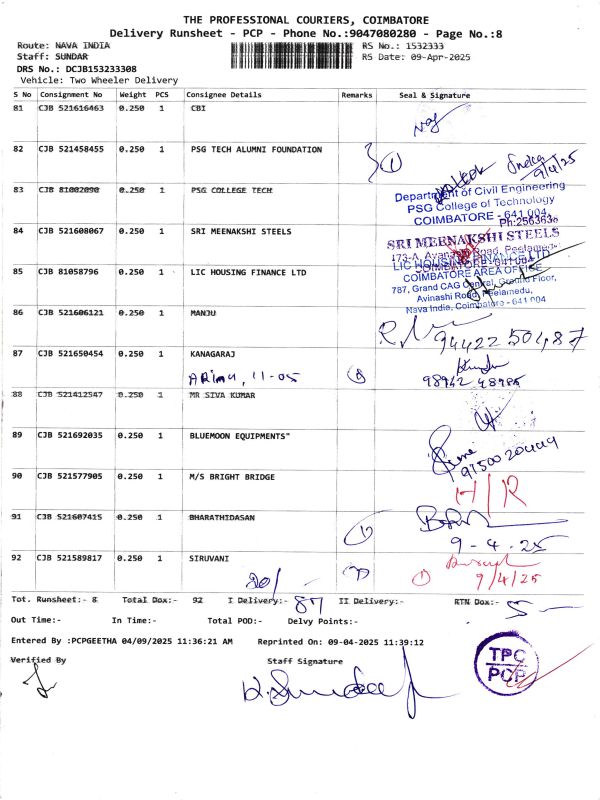 THE PROFESSIONAL COURIERS, COIMBATORE
Delivery Runsheet - PCP - Phone No.:9047080280 - Page No.:8
Route: NAVA INDIA
Staff: SUNDAR
DRS No.: DCJB153233308
Vehicle: Two Wheeler Delivery
RS No.: 1532333
RS Date: 09-Apr-2025
S No Consignment No Weight PCS Consignee Details Remarks Seal & Signature
81 CJB 521616463 0.250 1 CBI
82 CJB 521458455 0.250 1 PSG TECH ALUMNI FOUNDATION
1
9/4/25
83 CJB 81002090 0.250 1 PSG COLLEGE TECH
Department of Civil Engineering
PSG College of Technology
COIMBATORE - 641 004
84 CJB 521608067 0.250 1 SRI MEENAKSHI STEELS
Ph:256363
SRI MEENAKSHI STEELS
85 CJB 81058796 0.250 1 LIC HOUSING FINANCE LTD
LIC HOUSING FINANCE LTD
COIMBATORE AREA OFFICE
787, Grand CAG Central, Ground Floor,
Avinashi Road, Peelamedu,
Nava India, Coimbatore - 641 004
86 CJB 521606121 0.250 1 MANJU
9442250487
87 CJB 521650454 0.250 1 KANAGARAJ
11-05
88 CJB 521412547 0.250 1 MR SIVA KUMAR
89 CJB 521692035 0.250 1 BLUEMOON EQUIPMENTS"
90 CJB 521577905 0.250 1 M/S BRIGHT BRIDGE
H/R
91 CJB 521607415 0.250 1 BHARATHIDASAN
1
9-4-25
92 CJB 521589817 0.250 1 SIRUVANI
1
9/4/25
20/
Tot. Runsheet:- 8 Total Dox:- 92 I Delivery:- 87 II Delivery:- RTN Dox:- 5
Out Time:- In Time:- Total POD:- Delvy Points:-
Entered By :PCPGEETHA 04/09/2025 11:36:21 AM Reprinted On: 09-04-2025 11:39:12
Verified By Staff Signature
TPC
PCP